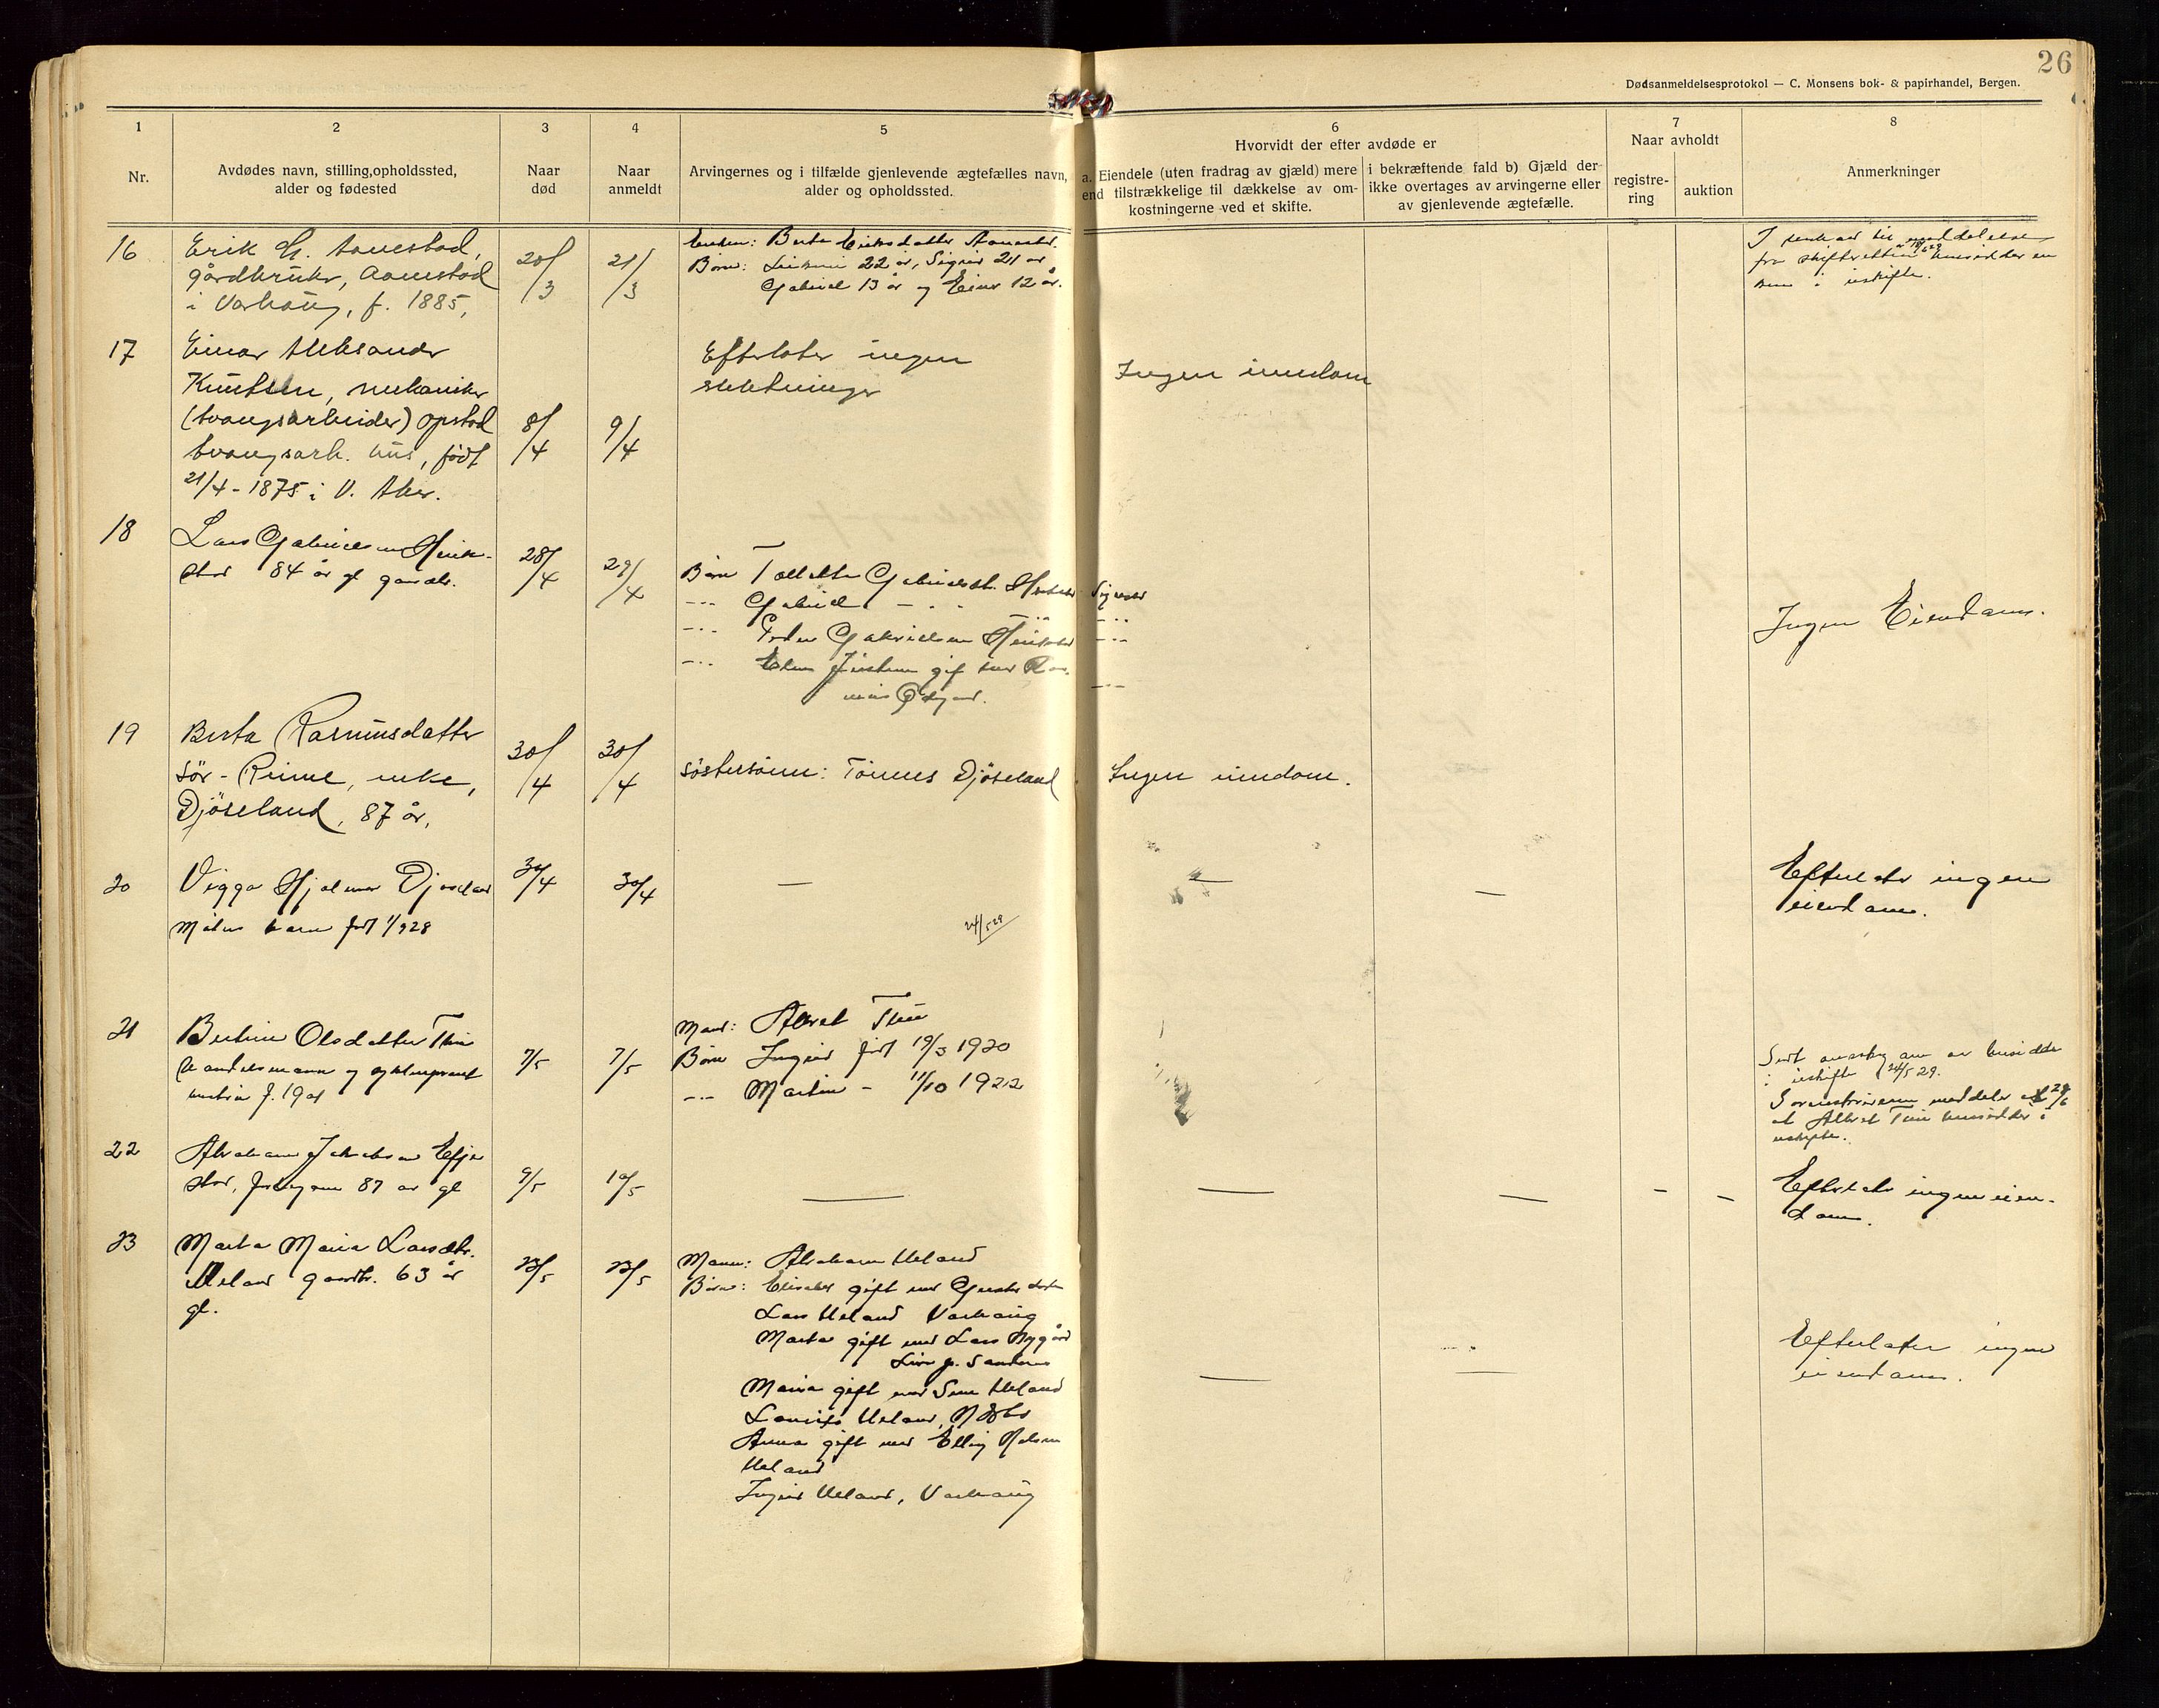 26
Dødsanmeldelsesprotokol — C. Monsens bok- & papirhandel, Bergen.
1
Nr.
2
Avdødes navn, stilling, opholdssted,
alder og fødested
3
Naar
død
4
Naar
anmeldt
5
Arvingernes og i tilfælde gjenlevende ægtefælles navn,
alder og opholdssted.
6
Hvorvidt der efter avdøde er
a. Eiendele (uten fradrag av gjæld) mere
end tilstrækkelige til dækkelse av om-
kostningerne ved et skifte.
i bekræftende fald b) Gjæld der-
ikke overtages av arvingerne eller
av gjenlevende ægtefælle.
7
Naar avholdt
registre-
ring
auktion
8
Anmerkninger
16
Erik G. Aanestad,
gårdbruker, Aanestad
i Varhaug, f. 1885,
20/3
21/3
Enken: Berta Eriksdatter Aanestad.
Børn: 22 år, Sigrid 21 år
Gabriel 13 år og Einar 12 år.
I henhold til meddelelse
fra skifteretten hensidder en
ken i uskifte.
17
Einar Aleksander
Knutsen, mekaniker
(tvangsarbeider) Opstad
tvangsarb. hus, født
21/4 - 1875 i V. Aker.
8/4
9/4
Efterlater ingen
slektninger
Ingen eiendom
18
Lars Gabrielsen Henik-
stad 84 år gl gaardbr.
28/4
29/4
Børn Tolletta Gabrielsdt.
--- Gabriel - . -
--- Peder Gabrielsen
--- gift med Ras-
mus Ødegaard.
Ingen Eiendom.
19
Berta Rasmusdatter
Sör-Reime, enke,
Djöseland, 87 år,
30/4
30/4
Söstersönn: Tönnes Djöseland
Ingen eiendom.
20
Viggo Hjalmar Djøseland
barn født 1/928
30/4
30/4
—
24/5 29
—
—
Efterlater ingen
eiendom.
21
Bertine Olsdatter Thu
handelsmann og
hustru f. 1901
7/5
7/5
Mand: Albret Thu
Børn Ingrid født 19/3 1920
--- Martin - 11/10 1922
Sendt om at hensidde
i uskifte 24/5 29.
Sorenskriveren meddeler 29/6
at Albret Thu hensidder i
uskifte.
22
Abraham Jakobsen Efje
stad, 87 år gl
9/5
10/5
—
—
—
-
-
Efterlater ingen eien-
dom.
23
Marta Maria Larsdtr.
Ueland gaardbr. 63 år
gl.
23/5
23/5
Mann: Abraham Ueland
Børn: Elisabet gift med
Lars Ueland Varhaug
Marta gift med Lars Nygård
Maria gift med Sem Ueland
Ueland,
Anna gift med Elling Nelson
Ueland
Ingrid Ueland, Varhaug
—
—
Efterlater ingen
eiendom.